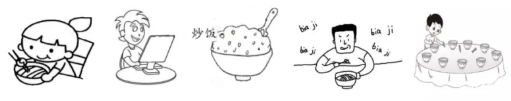 炒饭
bia ji
bia ji
bia ji
bia ji